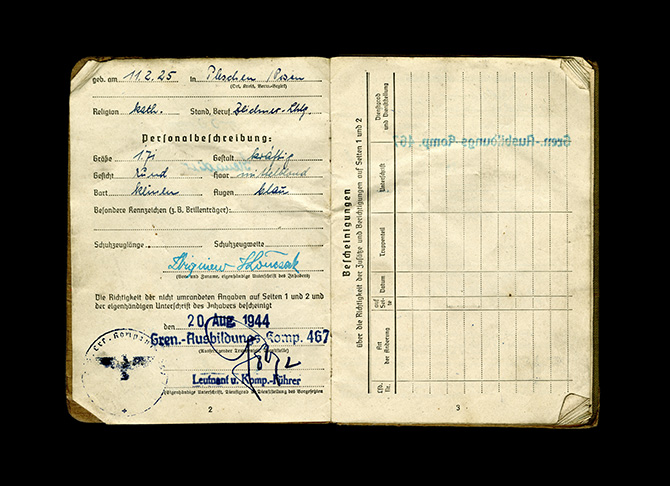 geb. am 11.2.25 in Pleschen /Posen
(Ort, Kreis, Verw.-Bezirk)
Religion kath. Stand, Beruf
Personalbeschreibung:
Größe 171 Gestalt kräftig
Gesicht rund Haar mittelblond
Bart keinen Augen blau
Besondere Kennzeichen (z. B. Brillenträger):
Schuhzeuglänge Schuhzeugweite
Zbigniew
(Vor- und Zuname, eigenhändige Unterschrift des Inhabers)
Die Richtigkeit der nicht umrandeten Angaben auf Seiten 1 und 2 und
der eigenhändigen Unterschrift des Inhabers bescheinigt
den 20 Aug. 1944
Gren.-Ausbildungs-Komp. 467
Leutnant u. Komp.-Führer
(Eigenhändige Unterschrift, Dienstgrad u. Dienststellung des Vorgesetzten
2
Bescheinigungen
über die Richtigkeit der Zusätze und Berichtigungen auf Seiten 1 und 2
Lfd. Nr.
Art der Änderung
auf Sei- te
Datum
Truppenteil
Unterschrift
Dienstgrad und Dienststellung
Gren.-Ausbildungs-Komp. 467
3